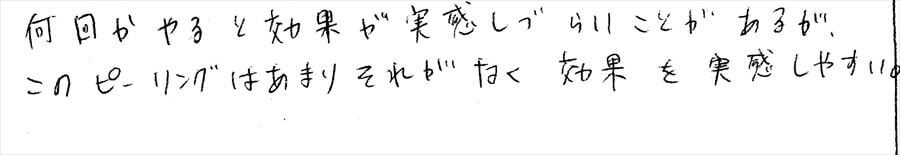 何回かやると効果が実感しづらいことがあるが、
このピーリングはあまりそれがなく効果を実感しやすい。